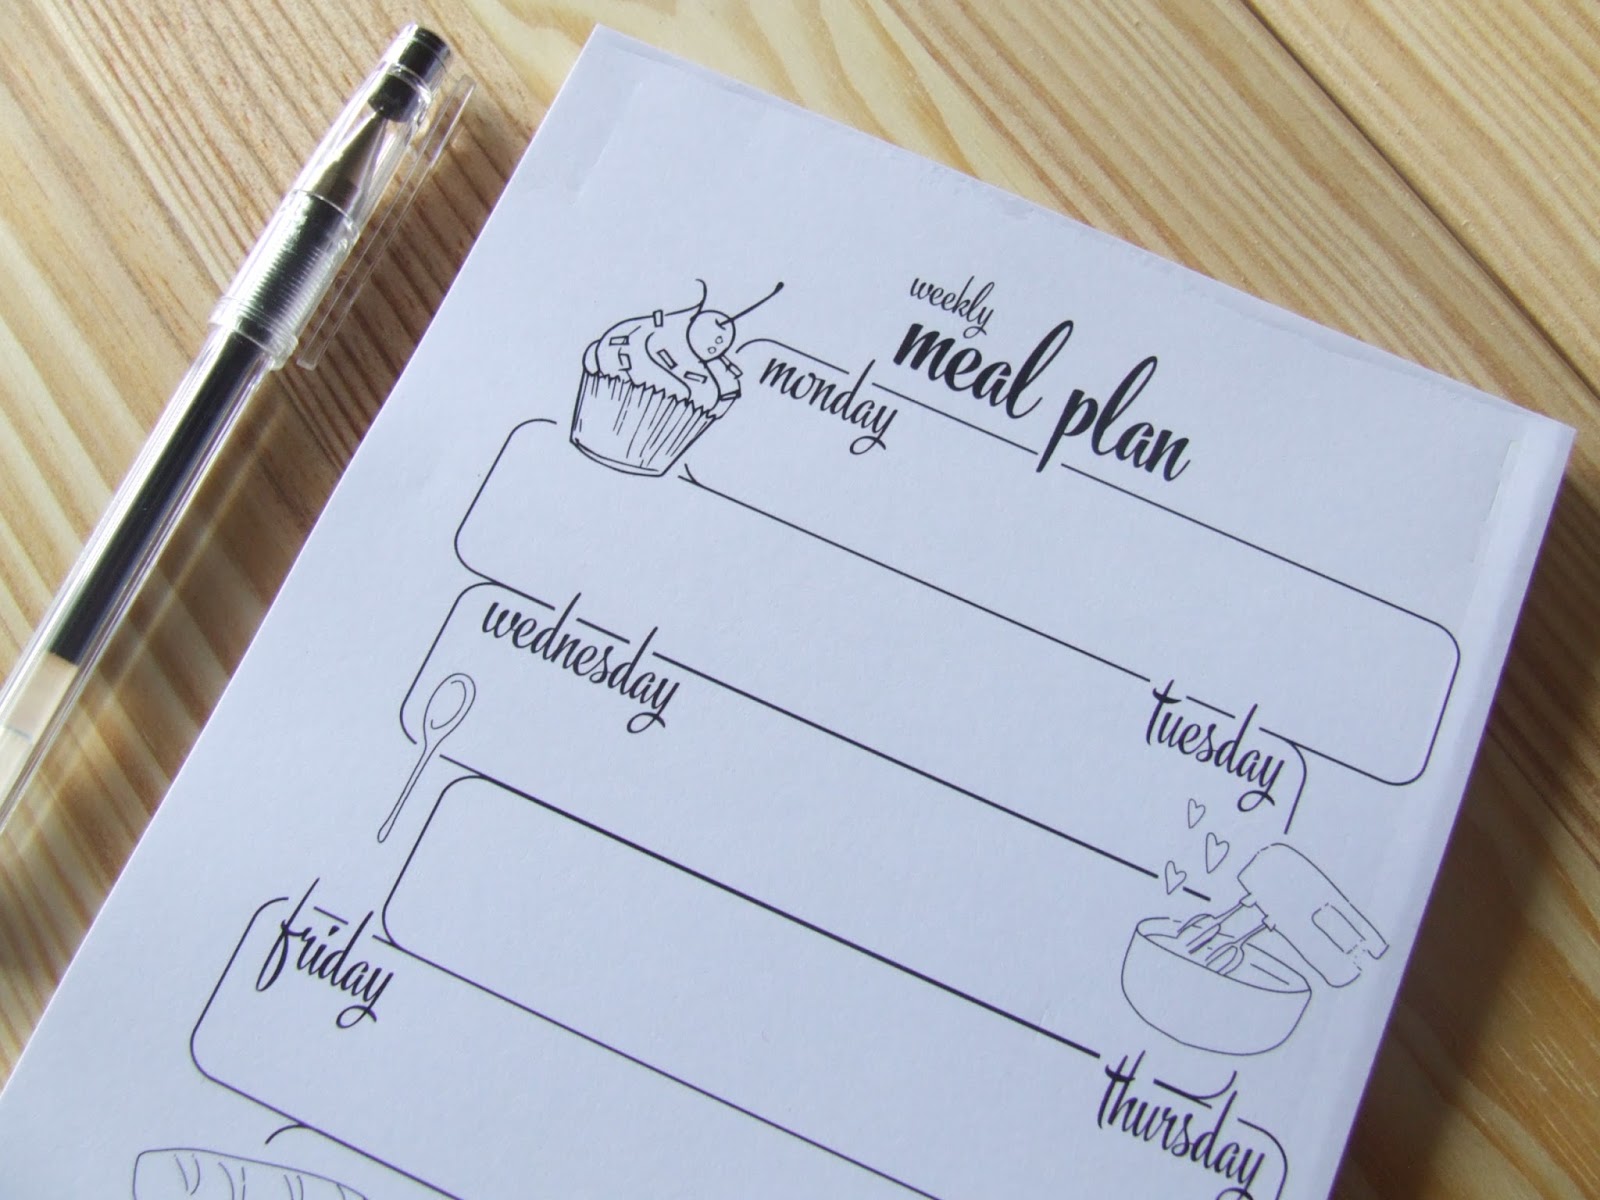 weekly
meal plan
monday
tuesday
wednesday
thursday
friday